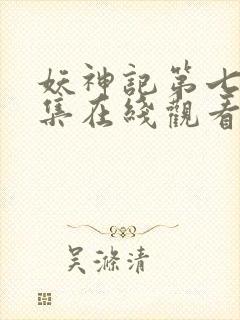 妖神記第七
集在綫觀看
吴滌清